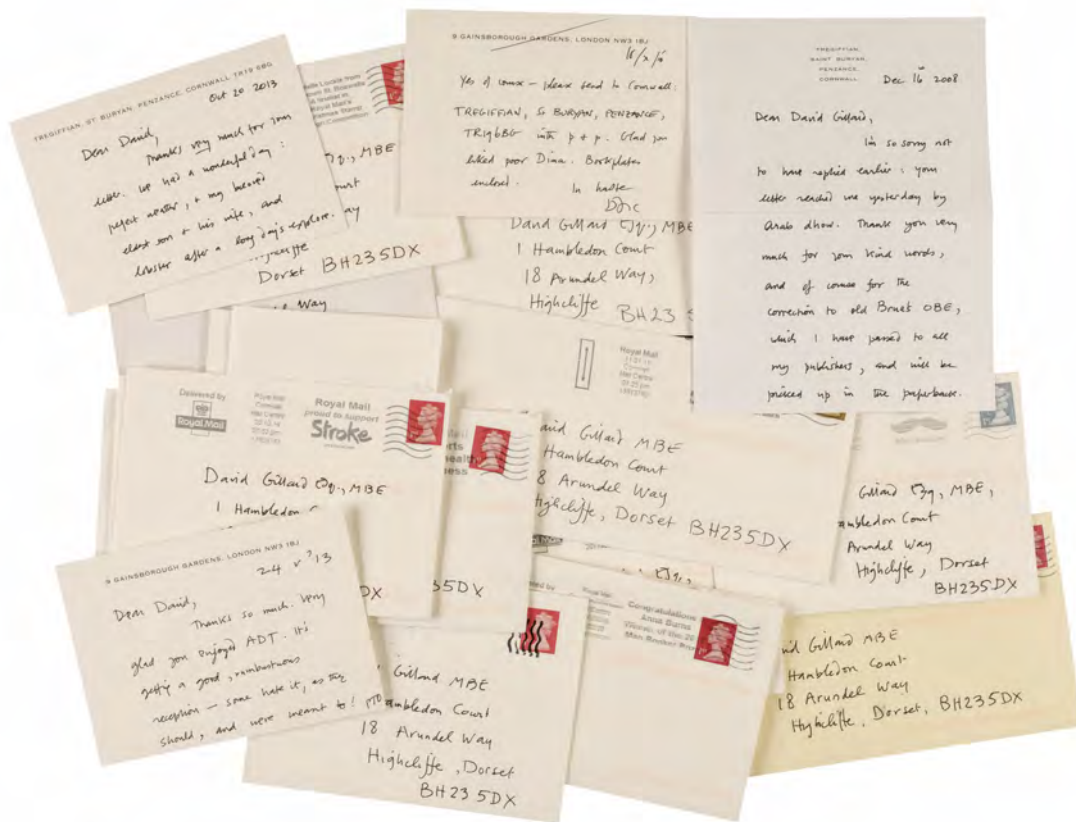 TREGIFFIAN, ST. BURYAN, PENZANCE, CORNWALL TR19 6BG
Oct 20 2013
Dear David,
Thanks very much for your
letter. We had a wonderful day:
perfect weather, & my beloved
eldest son & his wife, and
lobster after a long day's explore.
MBE
Court
Way
Highcliffe
Dorset BH23 5DX
9 GAINSBOROUGH GARDENS, LONDON NW3 1BJ
Yes of course – please send to Cornwall:
TREGIFFIAN, St BURYAN, PENZANCE,
TR19 6BG with p + p. Glad you
liked poor Dima. Bookplates
enclosed.
In haste
David Gillard Esq., MBE
1 Hambledon Court
18 Arundel Way,
Highcliffe BH23 5
TREGIFFIAN,
SAINT BURYAN,
PENZANCE,
CORNWALL
Dec 16 2008
Dear David Gillard,
I'm so sorry not
to have replied earlier: your
letter reached me yesterday by
Arab dhow. Thank you very
much for your kind words,
and of course for the
correction to old Brue's OBE,
which I have passed to all
my publishers, and will be
picked up in the paperback.
Way
Delivered by
Royal Mail
Royal Mail
Cornwall
Mail Centre
Royal Mail
proud to support
Stroke
David Gillard Esq., MBE
1 Hambledon C
DX
5DX
Royal Mail
Cornwall
Mail Centre
David Gillard MBE
Hambledon Court
18 Arundel Way
Highcliffe, Dorset BH23 5DX
Gillard Esq., MBE,
Hambledon Court
Arundel Way
Highcliffe, Dorset
BH23 5DX
9 GAINSBOROUGH GARDENS, LONDON NW3 1BJ
24 v '13
Dear David,
Thanks so much. Very
glad you enjoyed ADT. It's
getting a good, rambustuous
reception – some hate it, as they
should, and were meant to! PTO
Gillard MBE
Hambledon Court
18 Arundel Way
Highcliffe, Dorset
BH23 5DX
Congratulations
Anna Burns
Winner of the 20
Man Booker Priz
Gillard MBE
Hambledon Court
18 Arundel Way
Highcliffe, Dorset, BH23 5DX